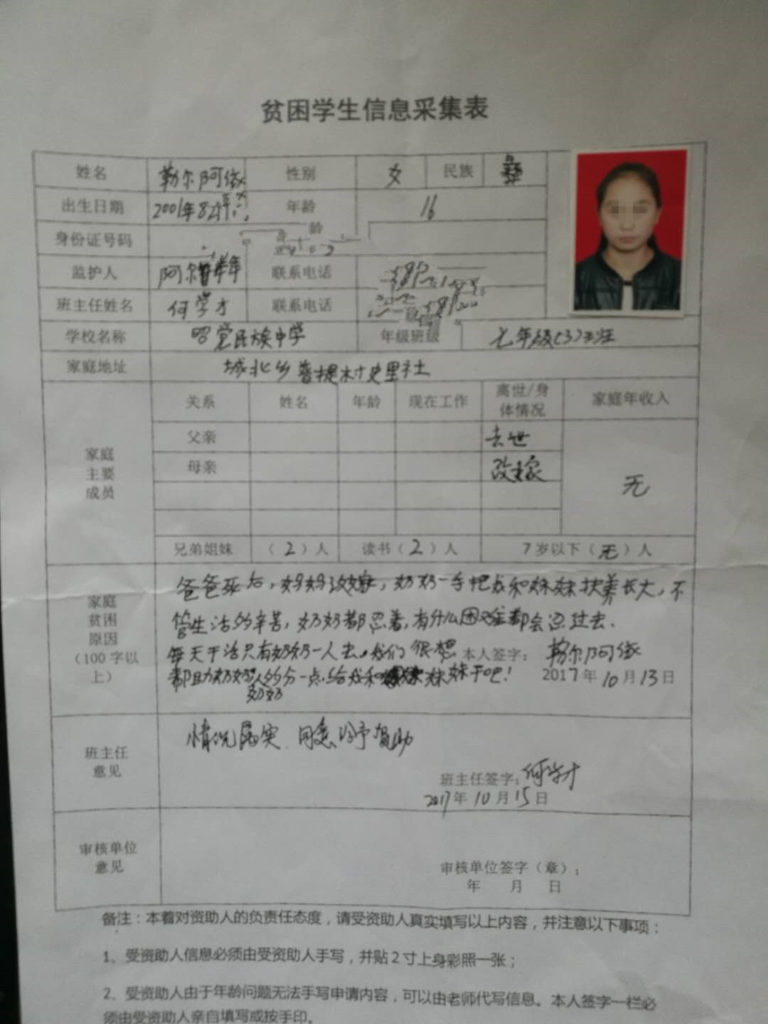 贫困学生信息采集表
姓名 勒尔阿依 性别 女 民族 彝
出生日期 2001年8 年龄 16
身份证号码
监护人 阿尔 联系电话
班主任姓名 何学才 联系电话
学校名称 昭觉民族中学 年级班级 七年级(3)班
家庭地址 城北乡普提村史里社
家庭主要成员 关系 姓名 年龄 现在工作 离世/身体情况 家庭年收入
父亲 去世
母亲 改嫁 无
兄弟姐妹 (2)人 读书(2)人 7岁以下(无)人
家庭贫困原因(100字以上)
爸爸死后,妈妈改嫁,奶奶一手把我和妹妹扶养长大,不
管生活的辛苦,奶奶都忍着,有什么困难都会过去.
每天干活只有奶奶一人去,我们很想 本人签字: 勒尔阿依
都助奶奶 的分一点,给我和妹妹干吧! 2017年10月13日
奶奶
班主任意见 情况属实 同意给予资助
班主任签字:何学才
2017年10月15日
审核单位意见
审核单位签字(章):
年 月 日
备注:本着对资助人的负责任态度,请受资助人真实填写以上内容,并注意以下事项:
1、受资助人信息必须由受资助人手写,并贴2寸上身彩照一张;
2、受资助人由于年龄问题无法手写申请内容,可以由老师代写信息。本人签字一栏必
须由受资助人亲自填写或按手印。